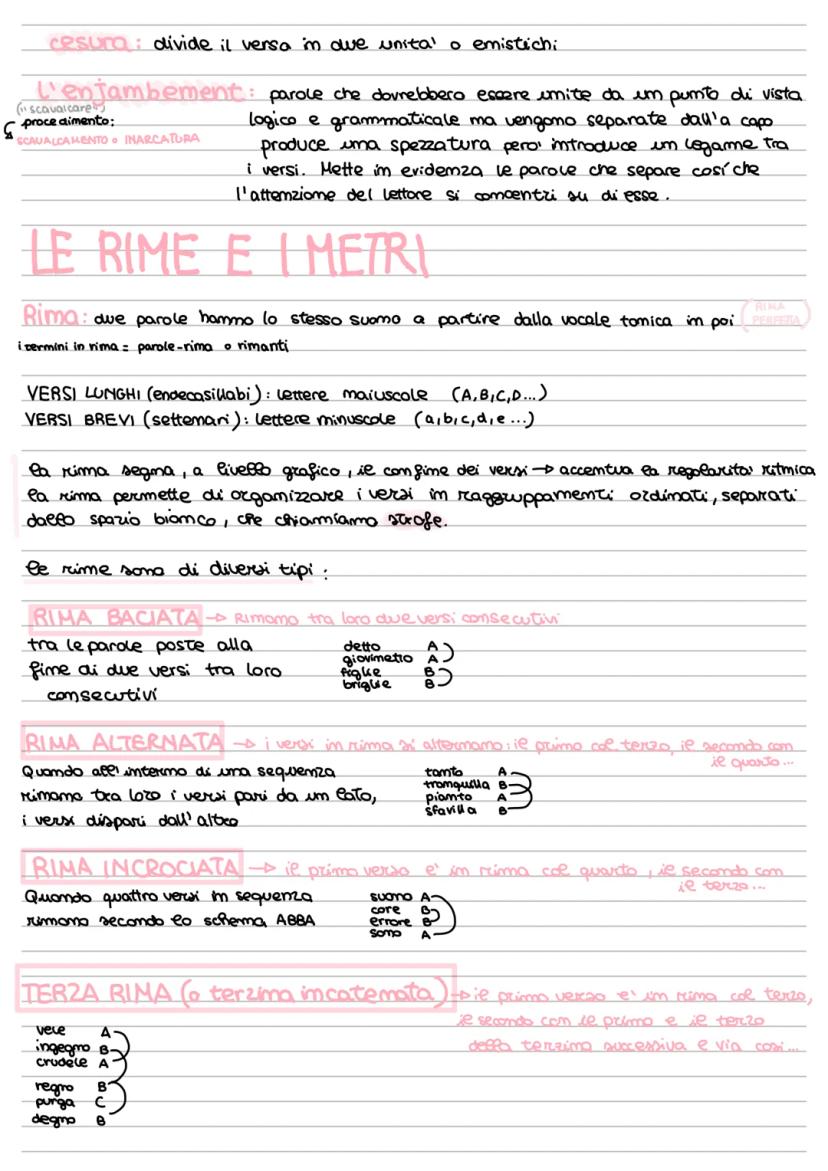 cesura: divide il verso in due unita' o emistichi
l'enjambement: parole che dovrebbero essere unite da un punto di vista
("scavalcare")
procedimento: logico e grammaticale ma vengono separate dall'a capo
SCAVALCAMENTO o INARCATURA
produce una spezzatura pero' introduce un legame tra
i versi. Mette in evidenza le parole che separe cosí che
l'attenzione del lettore si concentri su di esse.
LE RIME E I METRI
Rima: due parole hanno lo stesso suono a partire dalla vocale tonica in poi (RIMA PERFETTA)
i termini in rima = parole-rima o rimanti
VERSI LUNGHI (endecasillabi): lettere maiuscole (A,B,C,D...)
VERSI BREVI (settenari): lettere minuscole (a,b,c,d,e...)
la rima segna, a livello grafico, il confine dei versi → accentua la regolarita' ritmica
la rima permette di organizzare i versi in raggruppamenti ordinati, separati
dallo spazio bianco, che chiamiamo strofe.
le rime sono di diversi tipi:
RIMA BACIATA → Rimano tra loro due versi consecutivi
tra le parole poste alla
fine di due versi tra loro
consecutivi
detto A
giovinetto A
figlie B
briglie B
RIMA ALTERNATA → i versi in rima si alternano: il primo col terzo, il secondo con
il quarto...
Quando all'interno di una sequenza
rimano tra loro i versi pari da un lato,
i versi dispari dall'altro
tanto A
tranquilla B
pianto A
sfavilla B
RIMA INCROCIATA → il primo verso e' in rima col quarto, il secondo con
il terzo...
Quando quattro versi in sequenza
rimano secondo lo schema ABBA
suono A
core B
errore B
sono A
TERZA RIMA (o terzina incatenata) → il primo verso e' in rima col terzo,
il secondo con il primo e il terzo
della terzina successiva e via cosi...
vele A
ingegno B
crudele A
regno B
purga C
degno B